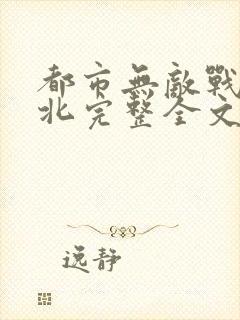 都市無敵戰
北完整全文
逸静